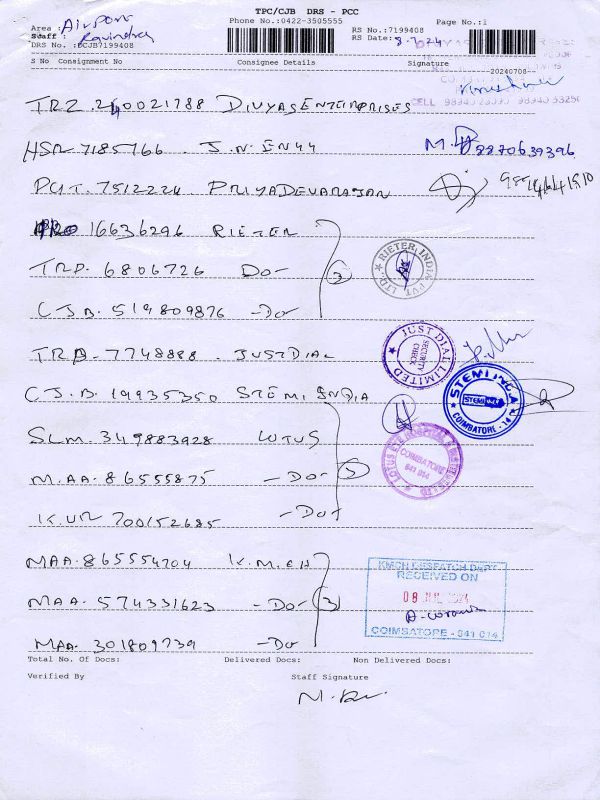 TPC/CJB DRS - PCC
Phone No.:0422-3505555 Page No.:1
Area : Airport RS No.:7199408
Staff : Ravindra RS Date: 8-7-24
DRS No. :DCJB7199408
S No Consignment No Consignee Details Signature 20240708
CELL
TRZ. 240021788 DIVYAS ENTERPRISES
HSR 7185766 . J.N. ENYY 8870639396
PUT. 7512224 PRIYADEVARAJAN
16636296 RIETER
TRP. 6806726 Do 3 RIETER INDIA PVT LTD.
CJB. 519809876 Do
TRB. 7748888 . JUSTDIAL JUST DIAL LIMITED SECURITY CHECK
CJ.B. 19935350 STEMI INDIA STEMI INDIA COIMBATORE - 14
SLM. 349883928 LOTUS
M.AA. 86555875 - Do 3 LOTUS EYE HOSPITAL COIMBATORE 641 014
K.UR 700152685 - Do
MAA. 865554704 K.M.CH KMCH DESPATCH DEPT
RECEIVED ON
MAA. 574331623 - Do 3 08 JUL 2024
MAA. 301809739 - Do COIMBATORE - 641 014
Total No. Of Docs: Delivered Docs: Non Delivered Docs:
Verified By Staff Signature